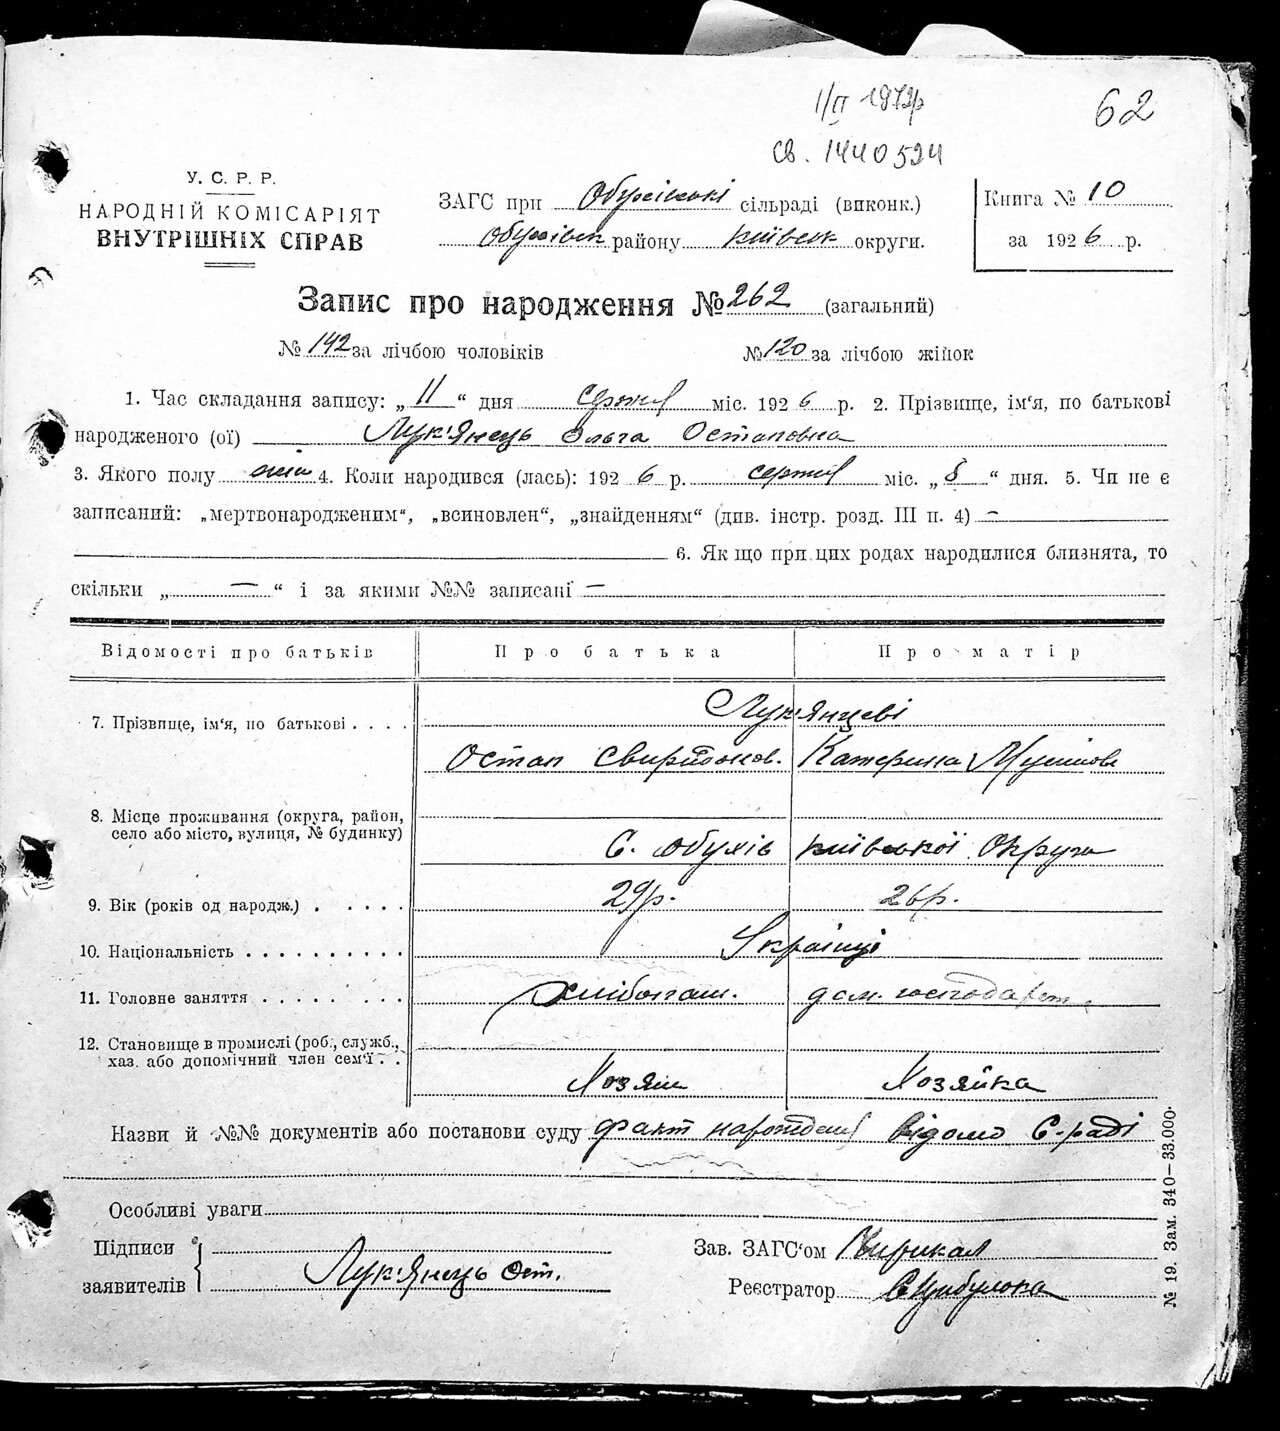 1/II 1972р
62
св. 1440524
У. С. Р. Р.
НАРОДНІЙ КОМІСАРІЯТ
ВНУТРІШНІХ СПРАВ
ЗАГС при Обухівські сільраді (виконк.)
Обухівск району Київськ округи.
Книга № 10
за 1926 р.
Запис про народження № 262 (загальний)
№ 142 за лічбою чоловіків № 120 за лічбою жінок
1. Час складання запису: „ 11 “ дня серпня міс. 1926 р. 2. Прізвище, ім‘я, по батькові
народженого (ої) Лук'янець Ольга Остаповна
3. Якого полу жін 4. Коли народився (лась): 1926 р. серпня міс. „ 8 “ дня. 5. Чи не є
записаний: „мертвонародженим“, „всиновлен“, „знайденням“ (див. інстр. розд. III п. 4) –
6. Як що при цих родах народилися близнята, то
скільки „ — “ і за якими №№ записані –
Відомості про батьків Про батька Про матір
7. Прізвище, ім‘я, по батькові . . . . Лук'янцеві
Остап Свиридонов. Катерина
8. Місце проживання (округа, район,
село або місто, вулиця, № будинку)
С. Обухів Київської Округи
9. Вік (років од народж.) . . . . . 29р. 26р.
10. Національність . . . . . . . . . . Українці
11. Головне заняття . . . . . . . . . Хлібопаш. дом. господарст.
12. Становище в промислі (роб., служб.,
хаз. або допомічний член сем‘ї . .
Хозяин Хозяйка
Назви й №№ документів або постанови суду факт народження відомо С-раді
Особливі уваги
Підписи
заявителів
Лук'янець Ост.
Зав. ЗАГС‘ом
Реєстратор Цибульока
№ 19. Зам. 340—33.000.